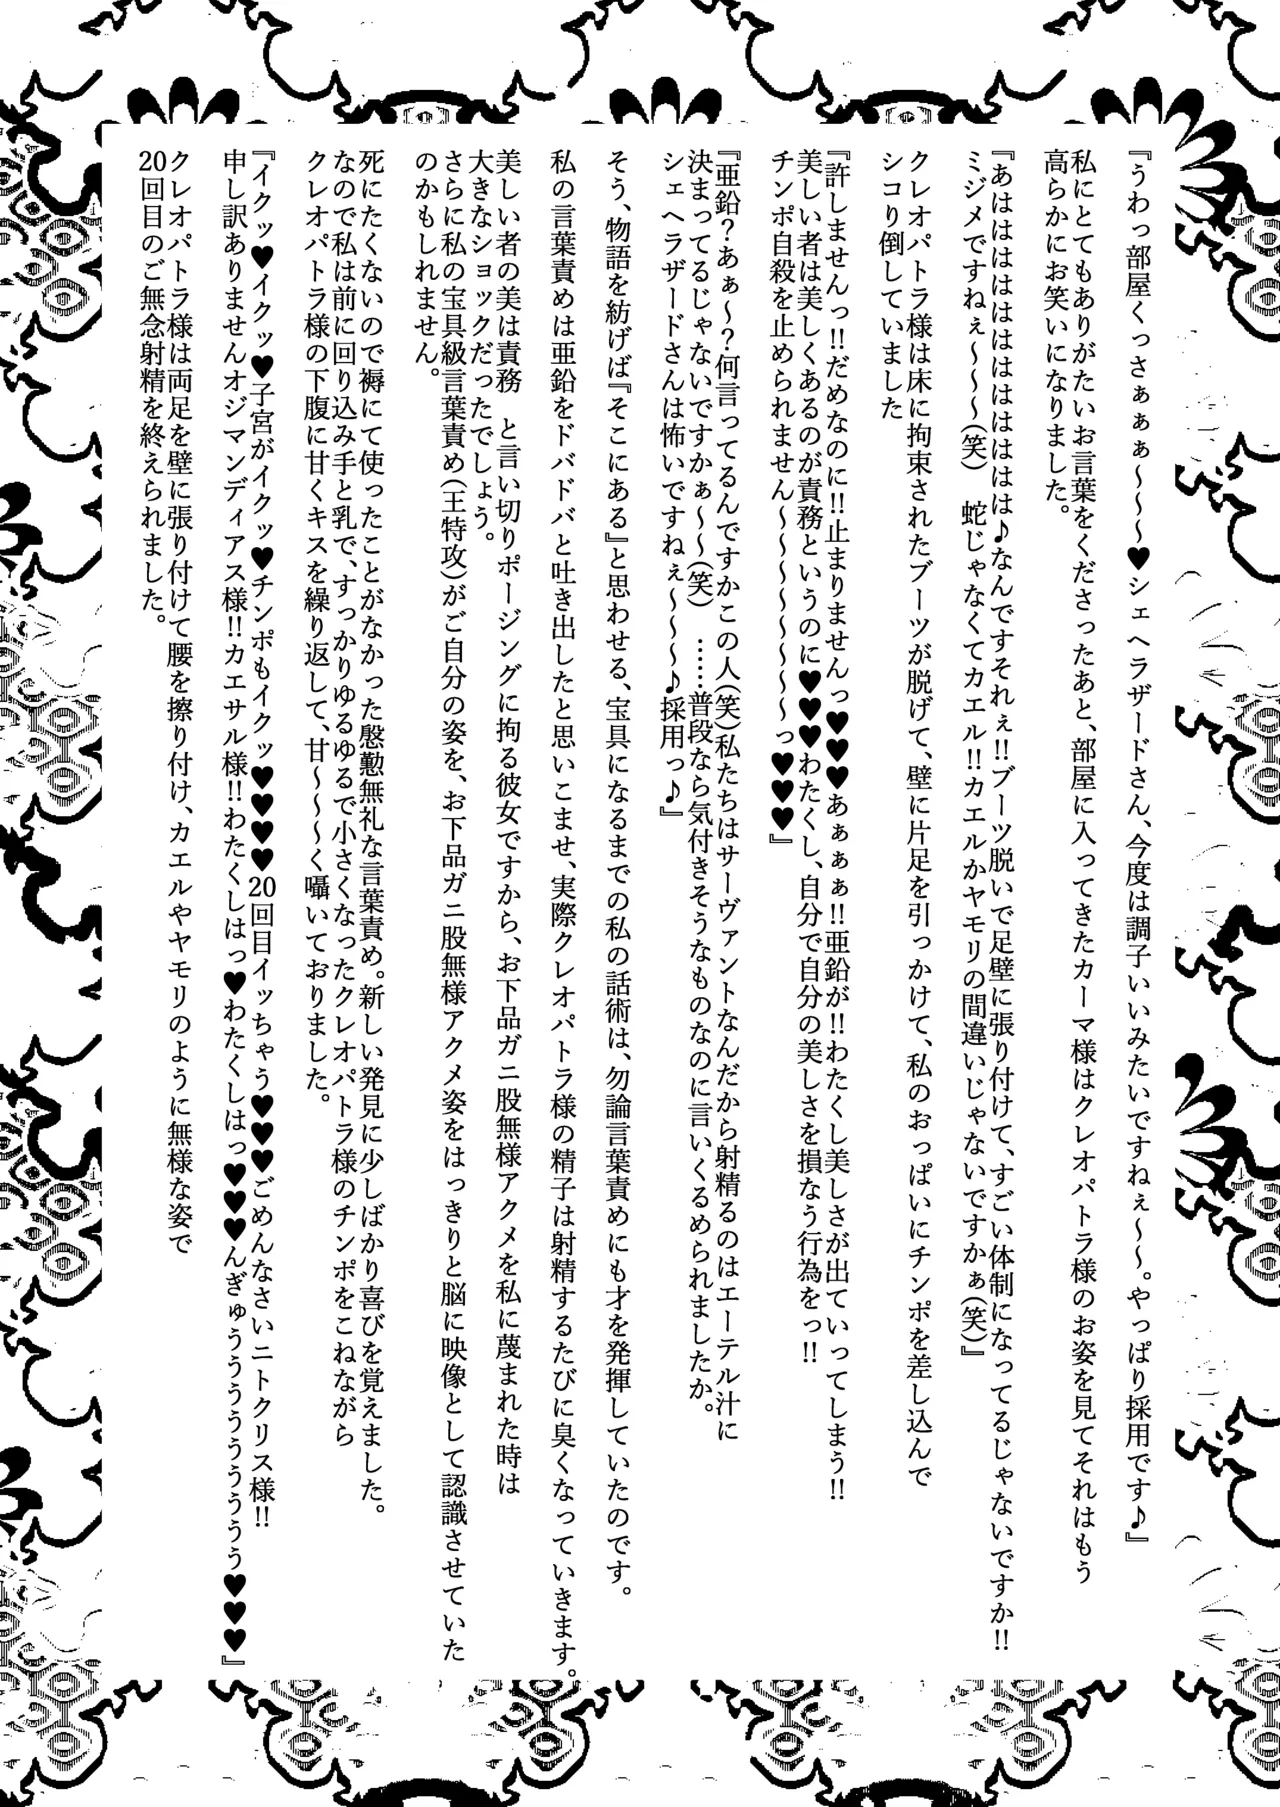 『うわっ部屋くっさぁぁぁ～～～♥シェヘラザードさん、今度は調子いいみたいですねぇ～～。やっぱり採用です♪』
私にとてもありがたいお言葉をくださったあと、部屋に入ってきたカーマ様はクレオパトラ様のお姿を見てそれはもう
高らかにお笑いになりました。
『あはははははははははははははは♪なんですそれぇ!!ブーツ脱いで足壁に張り付けて、すごい体制になってるじゃないですか!!
ミジメですねぇ～～～～(笑)　蛇じゃなくてカエル!!カエルかヤモリの間違いじゃないですかぁ(笑)』
クレオパトラ様は床に拘束されたブーツが脱げて、壁に片足を引っかけて、私のおっぱいにチンポを差し込んで
シコり倒していました
『許しませんっ!!だめなのに!!止まりませんっ♥♥♥あぁぁぁ!!亜鉛が!!わたくし美しさが出ていってしまう!!
美しい者は美しくあるのが責務というのに♥♥♥♥わたくし、自分で自分の美しさを損なう行為をっ!!
チンポ自殺を止められません～～～～～～～～っ♥♥♥』
『亜鉛?あぁ～?何言ってるんですかこの人(笑)私たちはサーヴァントなんだから射精るのはエーテル汁に
決まってるじゃないですかぁ～～(笑)　……普段なら気付きそうなものなのに言いくるめられましたか。
シェヘラザードさんは怖いですねぇ～～～♪採用っ♪』
そう、物語を紡げば『そこにある』と思わせる、宝具になるまでの私の話術は、勿論言葉責めにも才を発揮していたのです。
私の言葉責めは亜鉛をドバドバと吐き出したと思いこませ、実際クレオパトラ様の精子は射精するたびに臭くなっていきます。
美しい者の美は責務　と言い切りポージングに拘る彼女ですから、お下品ガニ股無様アクメを私に蔑まれた時は
大きなショックだったでしょう。
さらに私の宝具級言葉責め(王特攻)がご自分の姿を、お下品ガニ股無様アクメ姿をはっきりと脳に映像として認識させていた
のかもしれません。
死にたくないので褥にて使ったことがなかった慇懃無礼な言葉責め。新しい発見に少しばかり喜びを覚えました。
なので私は前に回り込み手と乳で、すっかりゆるゆるで小さくなったクレオパトラ様のチンポをこねながら
クレオパトラ様の下腹に甘くキスを繰り返して、甘～～～く囁いておりました。
『イクッ♥イクッ♥子宮がイクッ♥チンポもイクッ♥♥♥♥♥20回目イッちゃう♥♥♥♥ごめんなさいニトクリス様!!
申し訳ありませんオジマンディアス様!!カエサル様!!わたくしはっ♥わたくしはっ♥♥♥♥んぎゅうううううううううう♥♥♥』
クレオパトラ様は両足を壁に張り付けて腰を擦り付け、カエルやヤモリのように無様な姿で
20回目のご無念射精を終えられました。